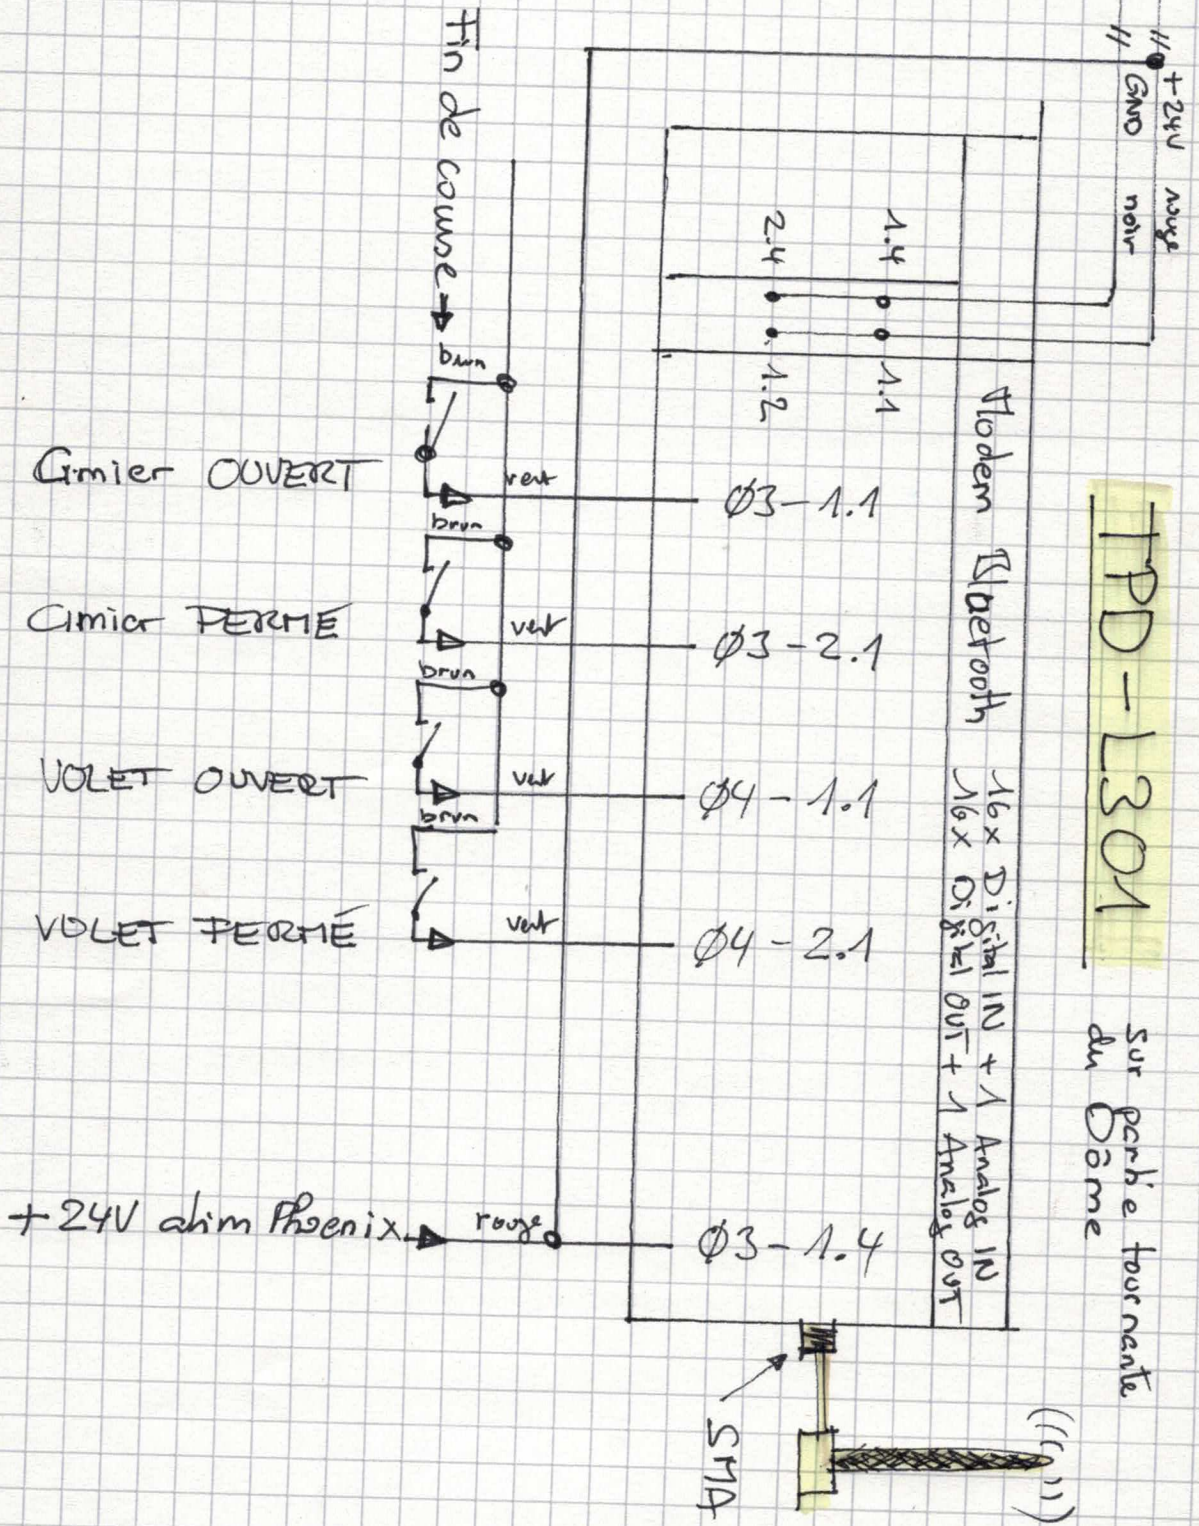 TPD-L301
Sur partie tournante
du Dôme
" +24V rouge
" GND noir
1.4
2.4
1.1
1.2
Modem Bluetooth
-16x Digital IN + 1 Analog IN
-16x Digital OUT + 1 Analog OUT
Fin de course
brun
Cimier OUVERT
vert
Ø3-1.1
brun
Cimier FERMÉ
vert
Ø3-2.1
brun
VOLET OUVERT
vert
Ø4-1.1
brun
VOLET FERMÉ
vert
Ø4-2.1
+24V alim Phoenix
rouge
Ø3-1.4
SMA